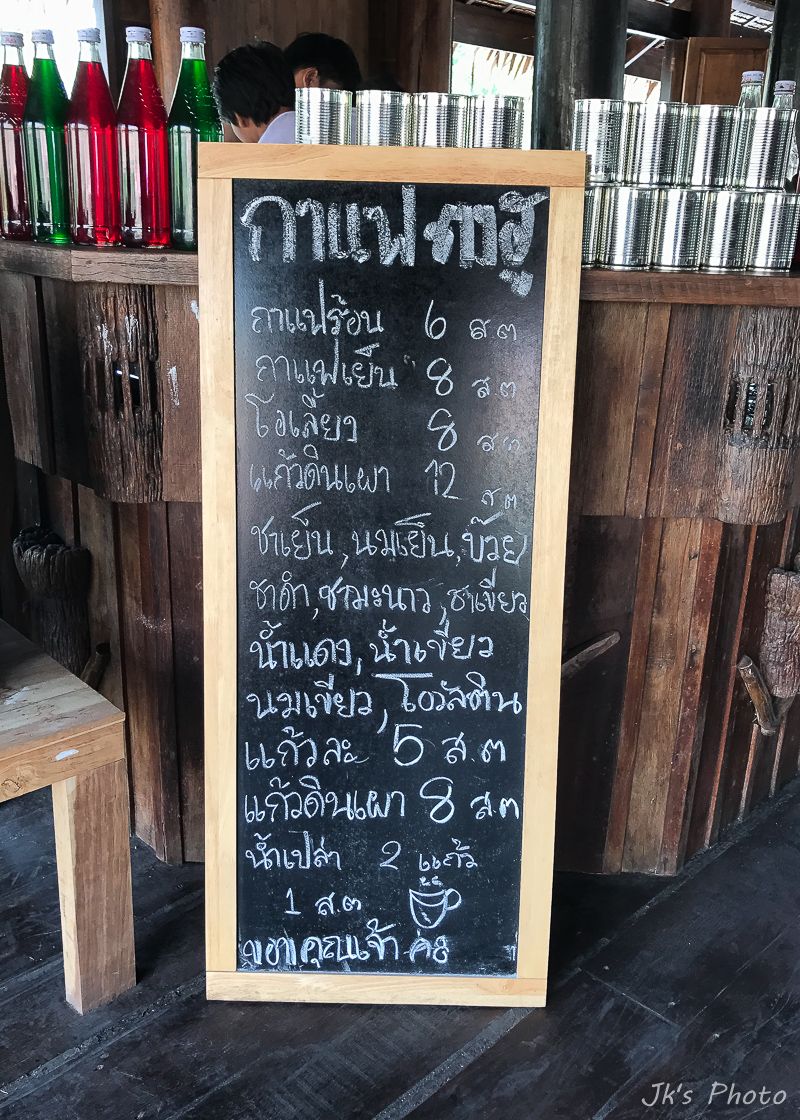 กาแฟ
กาแฟร้อน 6 ส.ต
กาแฟเย็น 8 ส.ต
โอเลี้ยง 8 ส.ต
แก้วดินเผา 12 ส.ต
ชาเย็น, นมเย็น, บ๊วย
ชาดำ, ชามะนาว, ชาเขียว
น้ำแดง, น้ำเขียว
นมเขียว, โอวัลติน
แก้วละ 5 ส.ต
แก้วดินเผา 8 ส.ต
น้ำเปล่า 2 แก้ว
1 ส.ต
ขอบคุณเจ้า ค่ะ
Jk's Photo